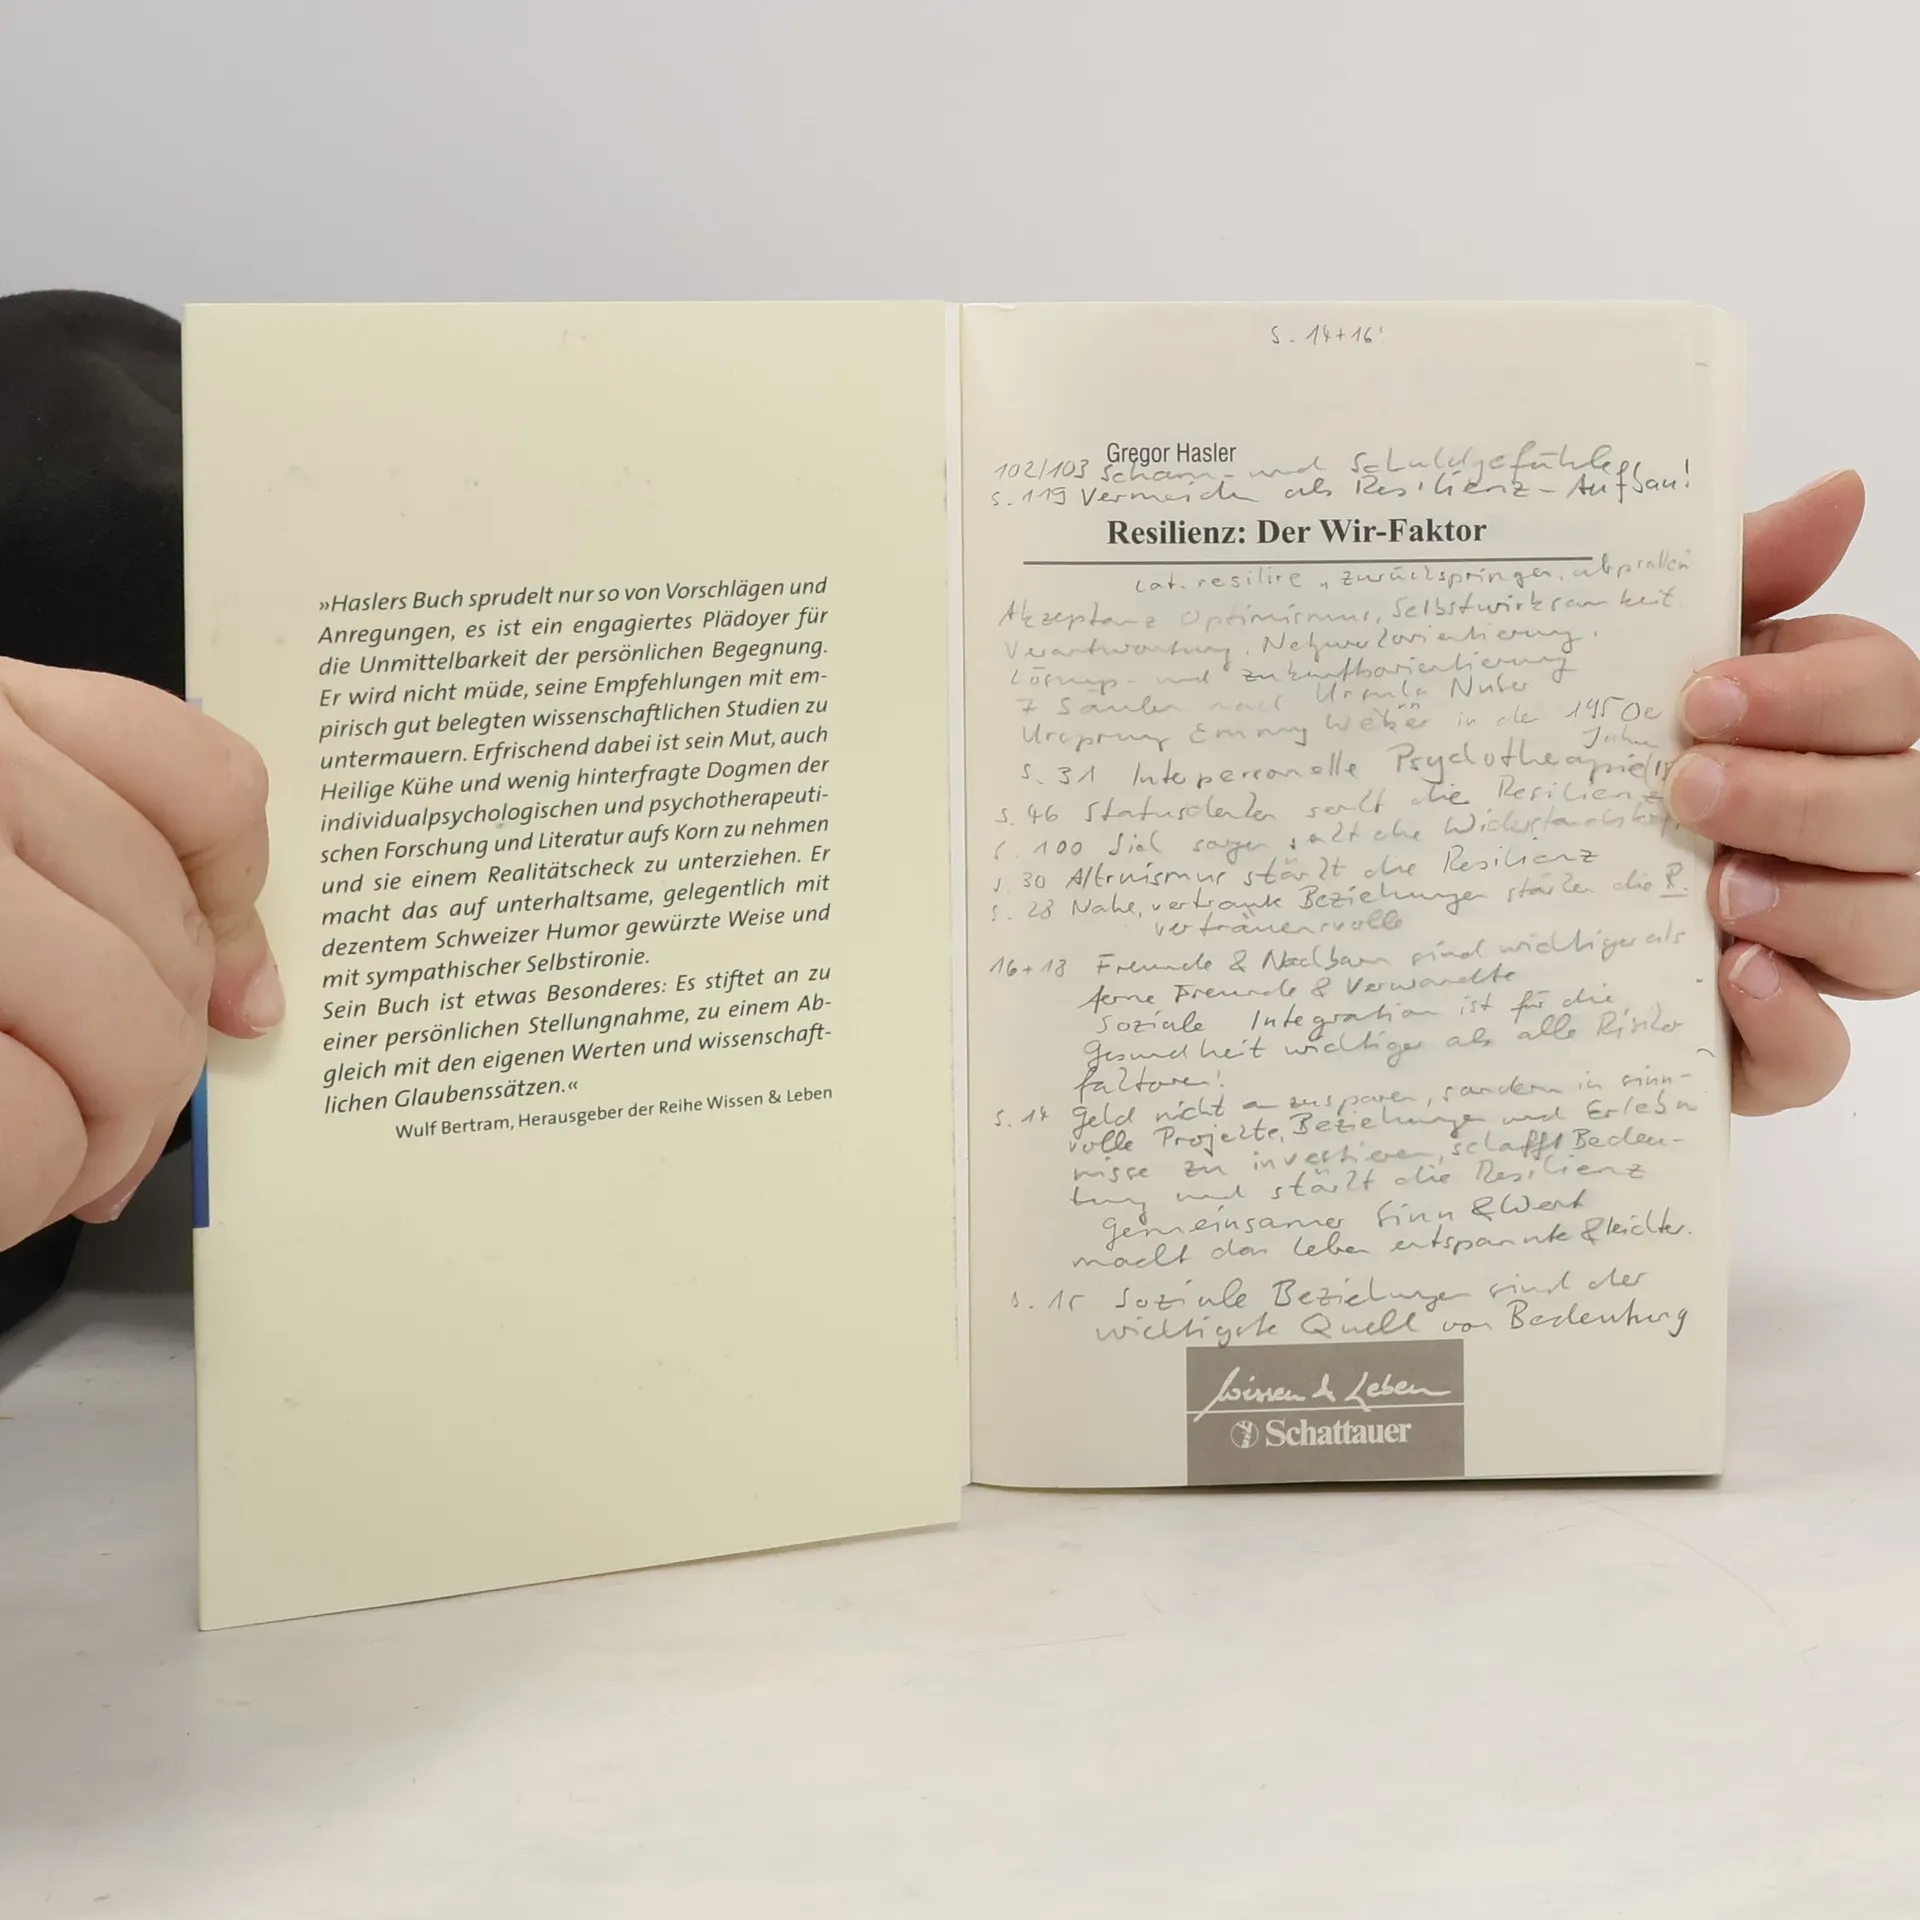 »Haslers Buch sprudelt nur so von Vorschlägen und
Anregungen, es ist ein engagiertes Plädoyer für
die Unmittelbarkeit der persönlichen Begegnung.
Er wird nicht müde, seine Empfehlungen mit em-
pirisch gut belegten wissenschaftlichen Studien zu
untermauern. Erfrischend dabei ist sein Mut, auch
Heilige Kühe und wenig hinterfragte Dogmen der
individualpsychologischen und psychotherapeuti-
schen Forschung und Literatur aufs Korn zu nehmen
und sie einem Realitätscheck zu unterziehen. Er
macht das auf unterhaltsame, gelegentlich mit
dezentem Schweizer Humor gewürzte Weise und
mit sympathischer Selbstironie.
Sein Buch ist etwas Besonderes: Es stiftet an zu
einer persönlichen Stellungnahme, zu einem Ab-
gleich mit den eigenen Werten und wissenschaft-
lichen Glaubenssätzen.«
Wulf Bertram, Herausgeber der Reihe Wissen & Leben
S. 14+16!
Gregor Hasler
102/103 Scham- und Schuldgefühle
S. 119 Vermeiden als Resilienz-Aufbau!
Resilienz: Der Wir-Faktor
Lat. resilire „zurückspringen, abprallen"
Akzeptanz Optimismus, Selbstwirksamkeit
Verantwortung, Netzwerkorientierung,
Lösungs- und Zukunftsorientierung
7 Säulen nach Ursula Nuber
Ursprung Emmy in den 1950er
Jahren
S. 31 Interpersonelle Psychotherapie
S. 46 Statusdenken senkt die Resilienz
S. 100 die
S. 30 Altruismus stärkt die Resilienz
S. 28 Nahe, vertraute Beziehungen stärken die R.
vertrauensvolle
16+18 Freunde & Nachbarn sind wichtiger als
ferne Freunde & Verwandte
Soziale Integration ist für die
Gesundheit wichtiger als alle Risiko
faktoren!
S. 14 Geld nicht anzusparen, sondern in sinn-
volle Projekte, Beziehungen und Erleb
nisse zu investieren, schafft Bedeu-
tung und stärkt die Resilienz
Gemeinsamer Sinn & Wert
macht das Leben entspannte & leichter.
S. 15 Soziale Beziehungen sind der
wichtigste Quell von Bedeutung
Wissen & Leben
Schattauer